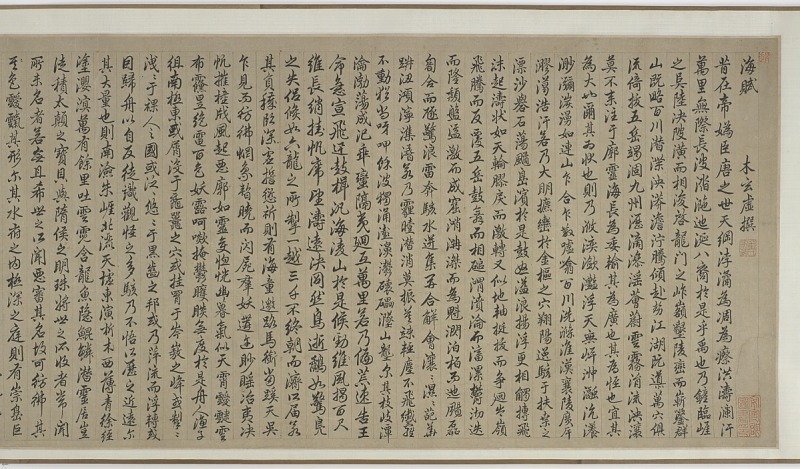 海賦　木玄虛撰
昔在帝媯臣唐之世天綱浡潏為凋為瘵洪濤瀾汗
萬里無際長波涾㴸迆涎八裔於是乎禹也乃鏟臨崕
之阜陸決陂潢而相浚啓龍門之岝嶺墾陵巒而嶄鑿群
山既略百川潛渫泱漭澹濘騰傾赴勢江湖既導萬穴俱
流掎拔五岳竭涸九州瀝滴滲淫薈蔚雲霧涓流泱瀼
莫不來注于廓靈海長為委輸其為廣也其為怪也宜其
為大也爾其為狀也則乃浟湙瀲灩浮天無岸沖瀜沆瀁
渺瀰湠漫如連山乍合乍散噓噏百川洗滌淮漢襄陵廣舄
膠㵧浩汗若乃大明摭轡於金樞之穴翔陽逸駭于扶桑之
漂沙礐石蕩颺島濱於是鼓怒溢浪揚浮更相觸搏飛
沫起濤狀如天輪膠戾而激轉又似地軸挺拔而爭迴岑嶺
飛騰而反覆五岳鼓舞而相磓㵢濆淪而滀漯鬱沏迭
而隆頹盤盓激而成窟㴶㴊滐而為魁㴸泊柏而迆颺磊
匒匌而相豗驚浪雷奔駭水迸集開合解會瀼瀼濕濕葩華
踧沑澒濘潗㵫若乃霾曀潛消莫振莫竦輕塵不飛纖蘿
不動猶尚呀呷餘波獨湧澎濞灪䃶碨磊山壟爾其枝岐潭
瀹渤蕩成汜乖蠻隔夷迴互萬里若乃偏荒速告王
命急宣飛迅鼓楫汎海凌山於是候勁風揭百尺
維長綃挂帆席望濤遠決冏然鳥逝鷸如驚鳧
之失侶倏如六龍之所掣一越三千不終朝而濟所屆若
其負穢臨深虛誓愆祈則有海童邀路馬銜當蹊天吳
乍見而髣髴蝄像暫曉而閃屍群妖遘迕眇䁘冶夷決
帆摧橦戕風起惡廓如靈變惚怳幽暮氣似天霄靉靅雲
布霵昱絕電百色妖露呵㰲掩鬱矆睒無度於是舟人漁子
徂南極東或屑沒于黿鼉之穴或挂罥于岑㟼之峰或掣掣
洩洩于裸人之國或汎汎悠悠于黑齒之邦或乃萍流而浮轉或
因歸舟以自反徒識觀怪之多駭乃不悟所歷之近遠爾
其大大量也則南澰朱崕北灑天墟東演析木西薄青徐經
塗瀴溟萬有餘里吐雲霓含龍魚隱鯤鱗潛靈居豈
徒積太顛之寶貝與隋侯之明珠將世之所收者常聞
所未名者若無且希世之所聞惡審其名故可髣髴其
其色靉霼其形爾其水府之內極深之庭則有崇島巨